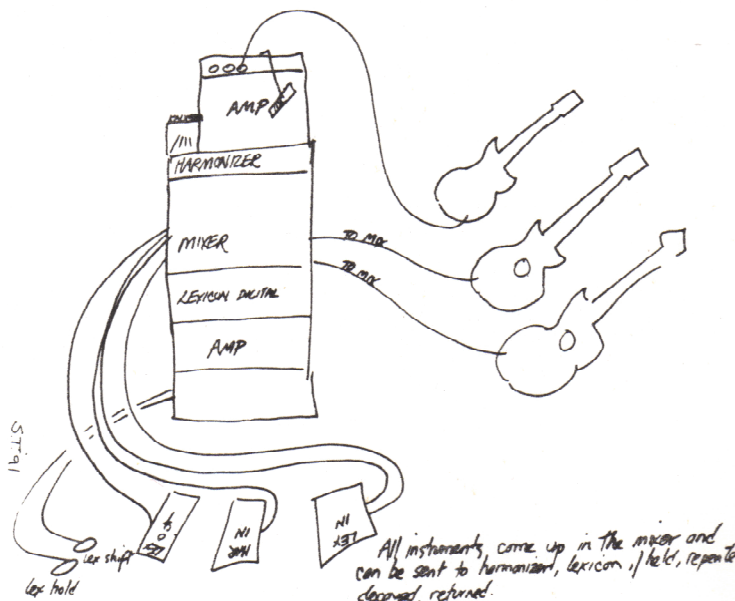 AMP
HARMONIZER
MIXER
TO MIX
TO MIX
LEXICON DIGITAL
AMP
HAR IN
LEX IN
Lex shift
Lex hold
All instruments, come up in the mixer and
can be sent to harmonizer, lexicon, held, repeated
decayed, returned.